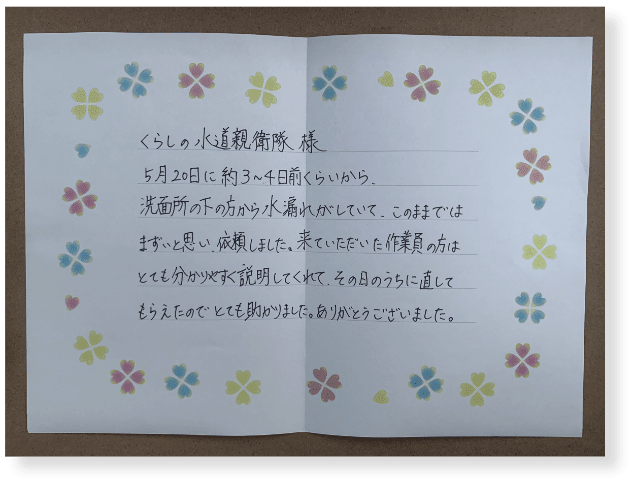 くらしの水道親衛隊 様
5月20日に約3~4日前くらいから、
洗面所の下の方から水漏れがしていて、このままでは
まずいと思い、依頼しました。来ていただいた作業員の方は
とても分かりやすく説明してくれて、その日のうちに直して
もらえたのでとても助かりました。ありがとうございました。